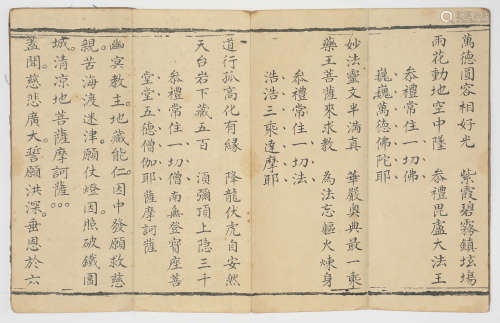 萬德圓容相好光　紫霞碧霧鎮坛場
雨花動地空中隆　叅禮毘盧大法王
叅禮常住一切佛
巍巍萬德佛陀耶
妙法靈文半滿真　華嚴奥典最一乗
藥王菩薩来求教　為法忘軀火煉身
叅禮常住一切法
浩浩三乗達摩耶
道行孤高化有緣　降龍伏虎自安然
天台岩下藏五百　須彌頂上隐三千
叅禮常住一切僧南無登寳座菩
堂堂五德僧伽耶　薩摩訶薩
幽冥教主地藏能仁因中發願救慈
親苦海渡迷津願伏燈因照破鐵圍
城清凉地菩薩摩訶薩
葢聞慈悲廣大誓願洪深垂恩於六